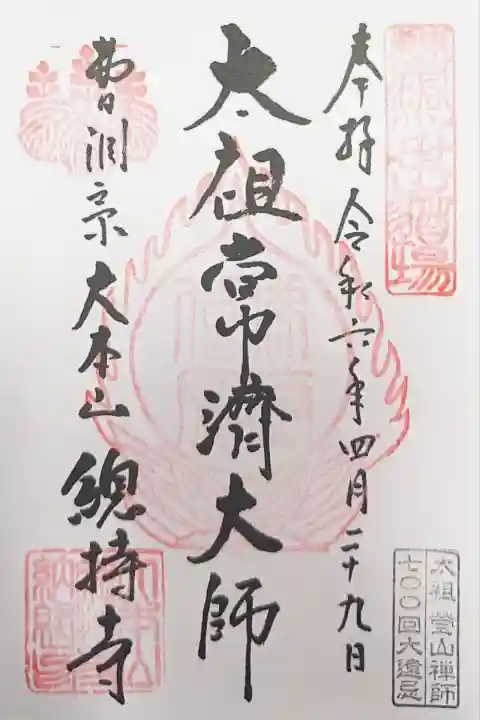 奉拝 令和六年四月二十九日
太祖常濟大師
曹洞宗 大本山 總持寺
太祖 瑩山禅師
七〇〇回大遠忌